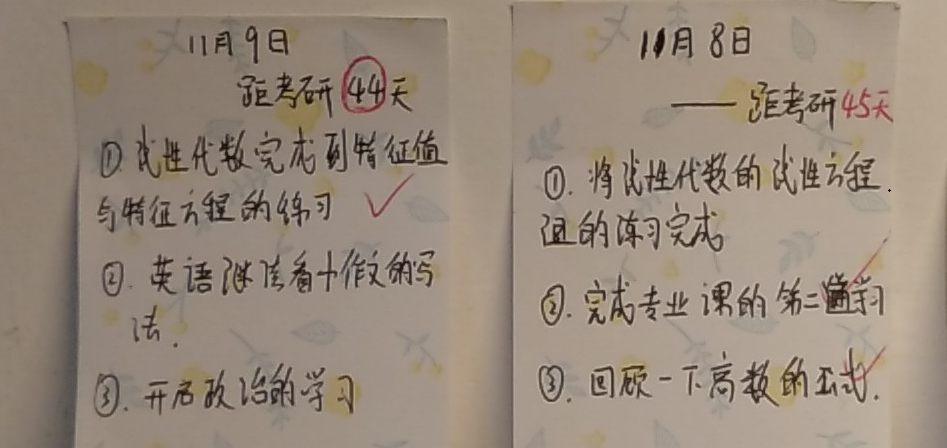 11月9日
距考研44天
①线性代数完成到特征值
与特征方程的练习
②.英语继续看十作文的写
法.
③.开启政治的学习
11月8日
——距考研45天
①.将线性代数的线性方程.
组的练习完成
②.完成专业课的第二遍学习
③.回顾一下高数的公式.